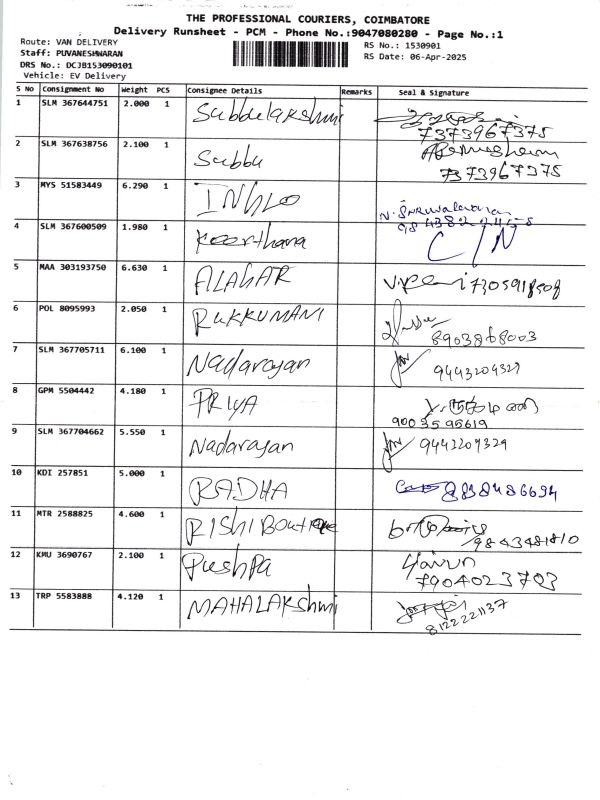 THE PROFESSIONAL COURIERS, COIMBATORE
Delivery Runsheet - PCM - Phone No.:9047080280 - Page No.:1
Route: VAN DELIVERY
RS No.: 1530901
Staff: PUVANESHWARAN
RS Date: 06-Apr-2025
DRS No.: DCJB153090101
Vehicle: EV Delivery
S No Consignment No Weight PCS Consignee Details Remarks Seal & Signature
1 SLM 367644751 2.000 1 Subbulakshmi
7373967375
2 SLM 367638756 2.100 1 Subbu
7373967375
3 MYS 51583449 6.290 1
4 SLM 367600509 1.980 1 Keerthana C/N
5 MAA 303193750 6.630 1 ALAGAR
6 POL 8095993 2.050 1 RUKKUMANI
8903868003
7 SLM 367705711 6.100 1 Nadarajan 9443209329
8 GPM 5504442 4.180 1 PRIYA
9003595619
9 SLM 367704662 5.550 1 Nadarajan 9443209329
10 KDI 257851 5.000 1 RADHA
11 MTR 2588825 4.600 1 RISHI Boutique
9843481810
12 KMU 3690767 2.100 1 Pushpa
7904023703
13 TRP 5583888 4.120 1 MAHALAKshmi
8122221137